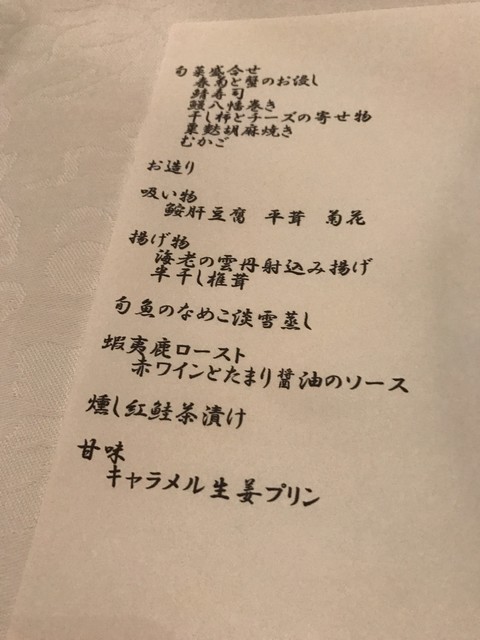 旬菜盛合せ
春菊と蟹のお浸し
鯖寿司
鰻八幡巻き
干し柿とチーズの寄せ物
粟麩胡麻焼き
むかご
お造り
吸い物
鮟肝豆腐 平茸 菊花
揚げ物
海老の雲丹射込み揚げ
半干し椎茸
旬魚のなめこ淡雪蒸し
蝦夷鹿ロースト
赤ワインとたまり醤油のソース
燻し紅鮭茶漬け
甘味
キャラメル生姜プリン